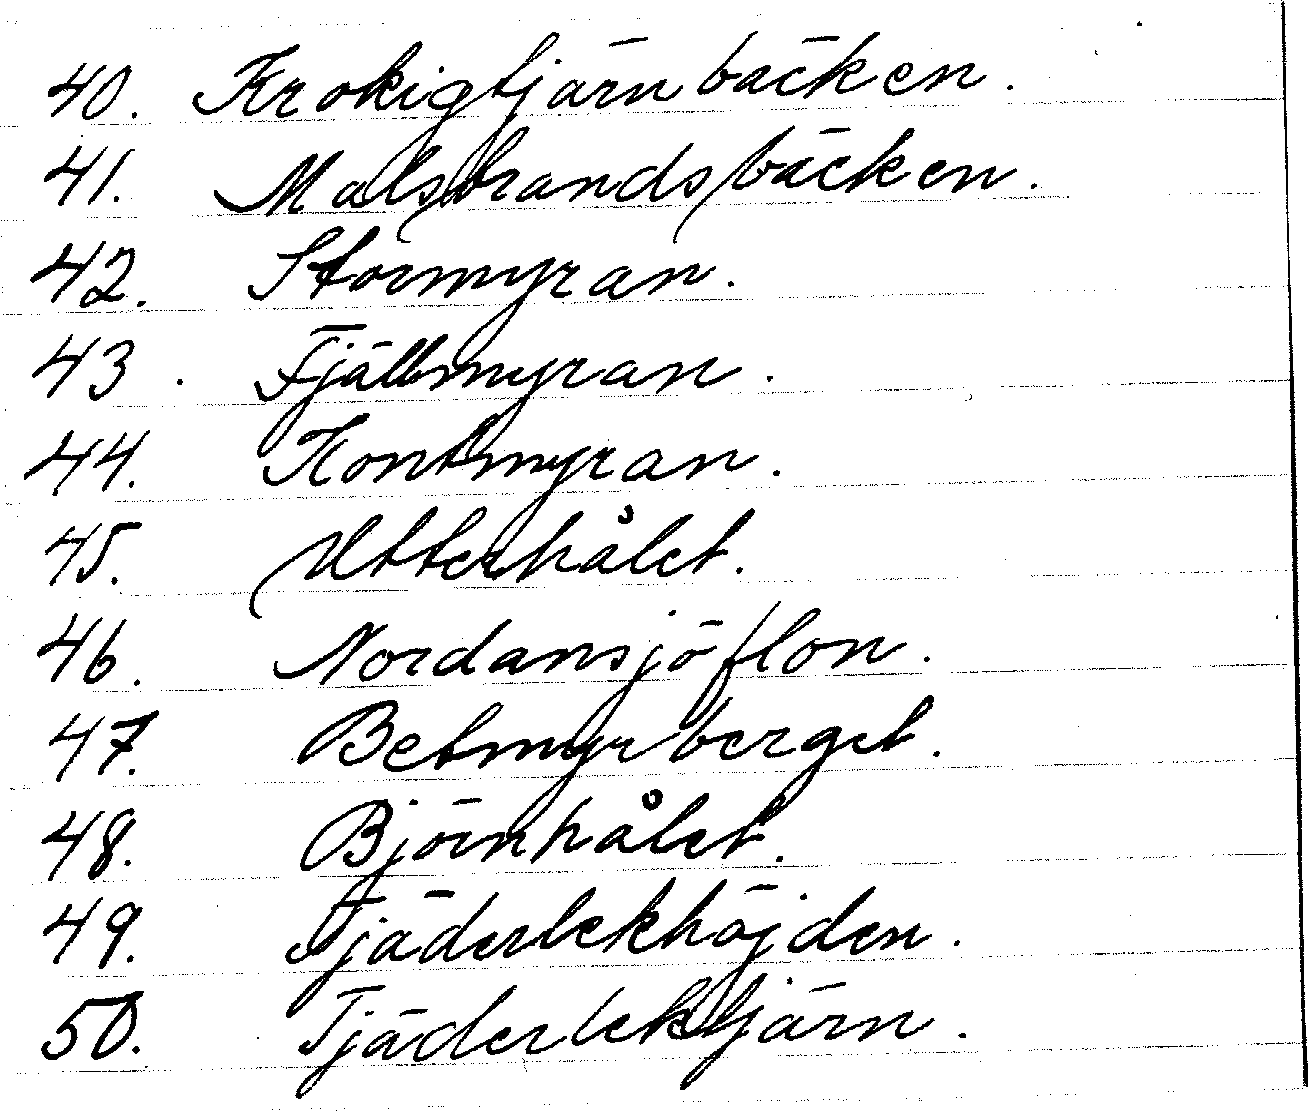 40. Krokigtjärnbäcken.
41. Malsbrandsbäcken.
42. Stormyran.
43. Fjällmyran.
44. Kontmyran.
45. Utterhålet.
46. Nordansjöflon.
47. Betmyrberget.
48. Björnhålet.
49. Tjäderlekhöjden.
50. Tjäderlektjärn.